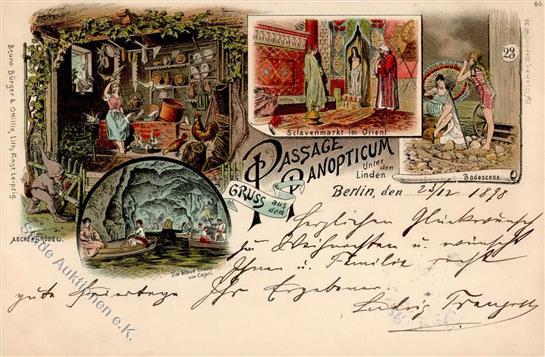 63
Bruno Bürger & Ottilie, Lith. Anst. Leipzig.
23
Sclavenmarkt im Orient
Badescene.
ASCHENBRÖDEL.
Die blaue Grotte
von Capri.
GRUSS aus dem
PASSAGE
PANOPTICUM
Unter den Linden
Berlin, den 23/12 1898
Herzlichen Glückwunsch
zu Weihnachten u. wünsch
Ihnen u. Familie recht
gute Feiertage Ihr Ergebener
Ludwig
Stade Auktionen e.K.